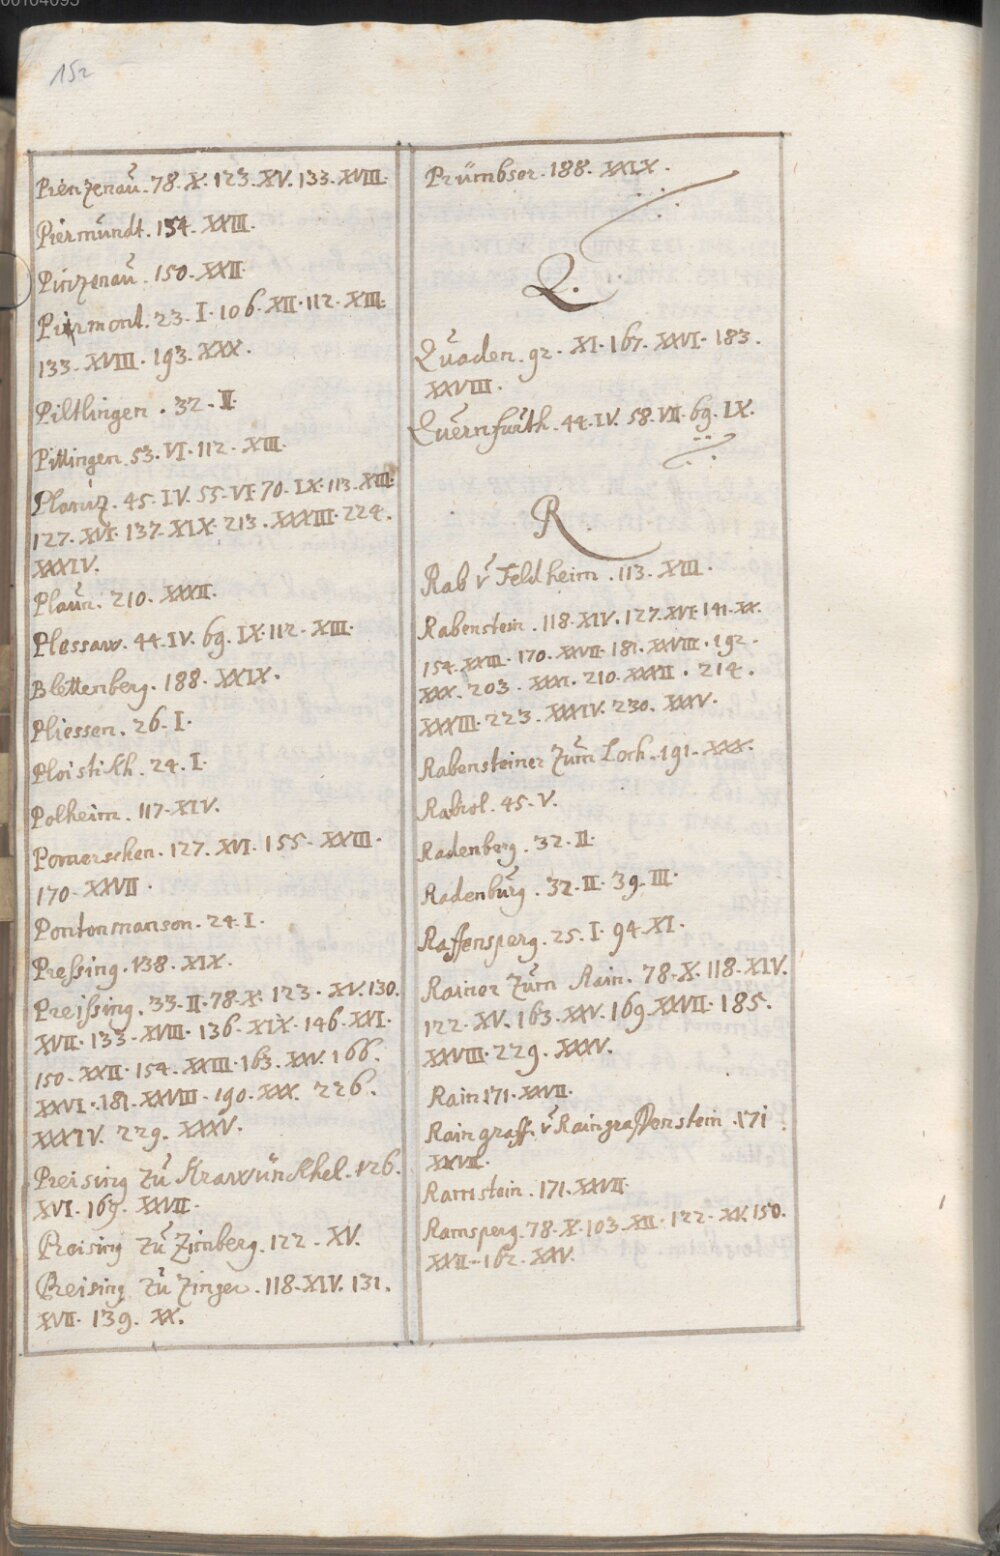 00104095
152
Pienzenaŭ. 78. X. 123. XV. 133. XVIII.
Piermŭndt. 154. XXIII.
Pinzenaŭ. 150. XXII.
Pirmont. 23. I. 106. XII. 112. XIII.
133. XVIII. 193. XXX.
Piltlingen. 32. II.
Pittingen. 53. VI. 112. XIII.
Planiz. 45. IV. 55. VI. 70. IX. 113. XIII.
127. XVI. 137. XIX. 213. XXXIII. 224.
XXXIV.
Plaŭn. 210. XXXII.
Plessaw. 44. IV. 69. IX. 112. XIII.
Blettenberg. 188. XXIX.
Pliessen. 26. I.
Ploistikh. 24. I.
Polheim. 117. XIV.
Pomerschen. 127. XVI. 155. XXIII.
170. XXVII.
Pontonmanson. 24. I.
Preßing. 138. XIX.
Preißing. 33. II. 78. X. 123. XV. 130.
XVII. 133. XVIII. 136. XIX. 146. XXI.
150. XXII. 154. XXIII. 163. XXV. 166.
XXVI. 181. XXVIII. 190. XXX. 226.
XXXIV. 229. XXXV.
Preising zŭ Krawünkhel. 126.
XVI. 169. XXVII.
Preising zŭ Zimberg. 122. XV.
Preising zŭ Zinger. 118. XIV. 131.
XVII. 139. XX.
Prümbser. 188. XXIX.
Q.
Qŭaden. 92. XI. 167. XXVI. 183.
XXVIII.
Qŭernfŭrth. 44. IV. 58. VII. 69. IX.
R
Rab v̆ Feldheim. 113. XIII.
Rabenstein. 118. XIV. 127. XVI. 141. XX.
154. XXIII. 170. XXVII. 181. XXVIII. 192.
XXX. 203. XXXI. 210. XXXII. 214.
XXXIII. 223. XXXIV. 230. XXXV.
Rabensteiner zŭm Loch. 191. XXX.
Rabrol. 45. V.
Radenberg. 32. II.
Radenbŭrg. 32. II. 39. III.
Raffensperg. 25. I. 94. XI.
Rainer zŭm Rain. 78. X. 118. XIV.
122. XV. 163. XXV. 169. XXVII. 185.
XXVIII. 229. XXXV.
Rain. 171. XXVII.
Raingraff. v̆ Raingraffenstein. 171.
XXVII.
Ramstein. 171. XXVII.
Ramsperg. 78. X. 103. XII. 122. XV. 150.
XXII. 162. XXV.